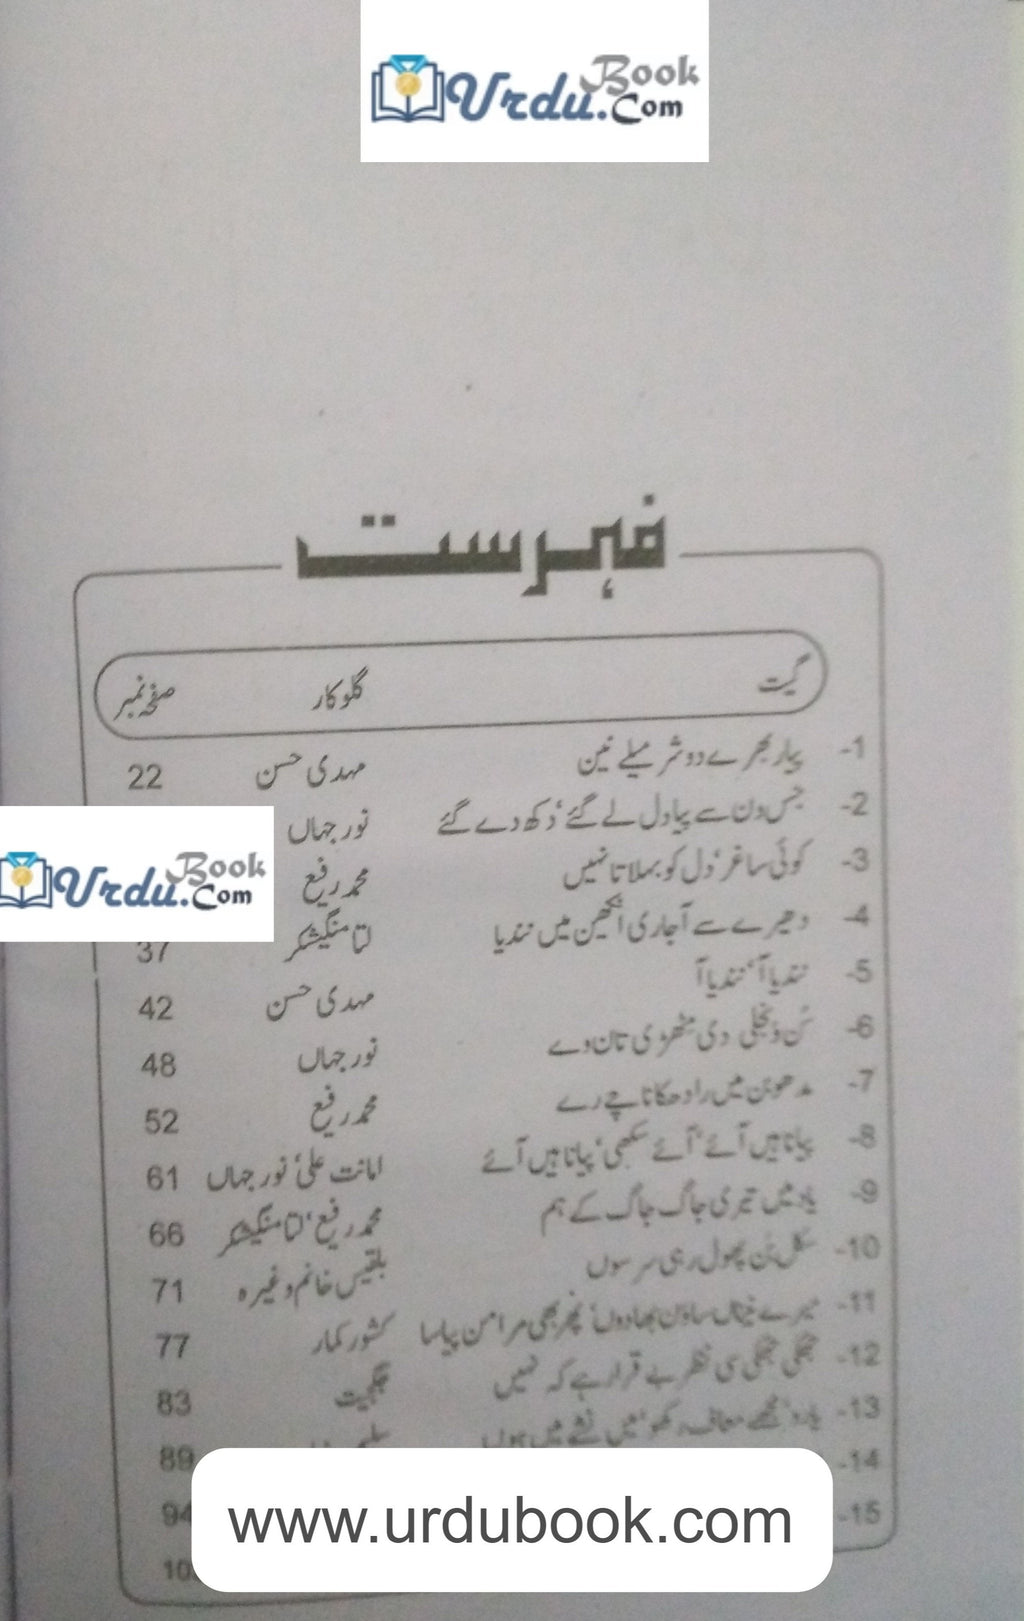 Urdu Book .Com
فہرست
گیت گلوکار صفحہ نمبر
1- پیار بھرے دو شرمیلے نین مہدی حسن 22
2- جس دن سے پیا دل لے گئے، دکھ دے گئے نور جہاں
3- کوئی ساغر دل کو بہلاتا نہیں محمد رفیع
4- دھیرے سے آجا ری انکھین میں نندیا لتا منگیشکر 37
5- نندیا آ، نندیا آ مہدی حسن 42
6- سُن ونجلی دی مٹھڑی تان وے نور جہاں 48
7- مدھوبن میں رادھکا ناچے رے محمد رفیع 52
8- پیا ناہیں آئے، آئے سکھی، پیا ناہیں آئے امانت علی، نور جہاں 61
9- یاد میں تیری جاگ جاگ کے ہم محمد رفیع، لتا منگیشکر 66
10- سکل بن پھول رہی سرسوں بلقیس خانم وغیرہ 71
11- میرے نیناں ساون بھادوں، پھر بھی مرا من پیاسا کشور کمار 77
12- جھکی جھکی سی نظر بے قرار ہے کہ نہیں جگجیت 83
13- یارو، مجھے معاف رکھو، میں نشے میں ہوں 89
14- 94
15-
Urdu Book .Com
www.urdubook.com